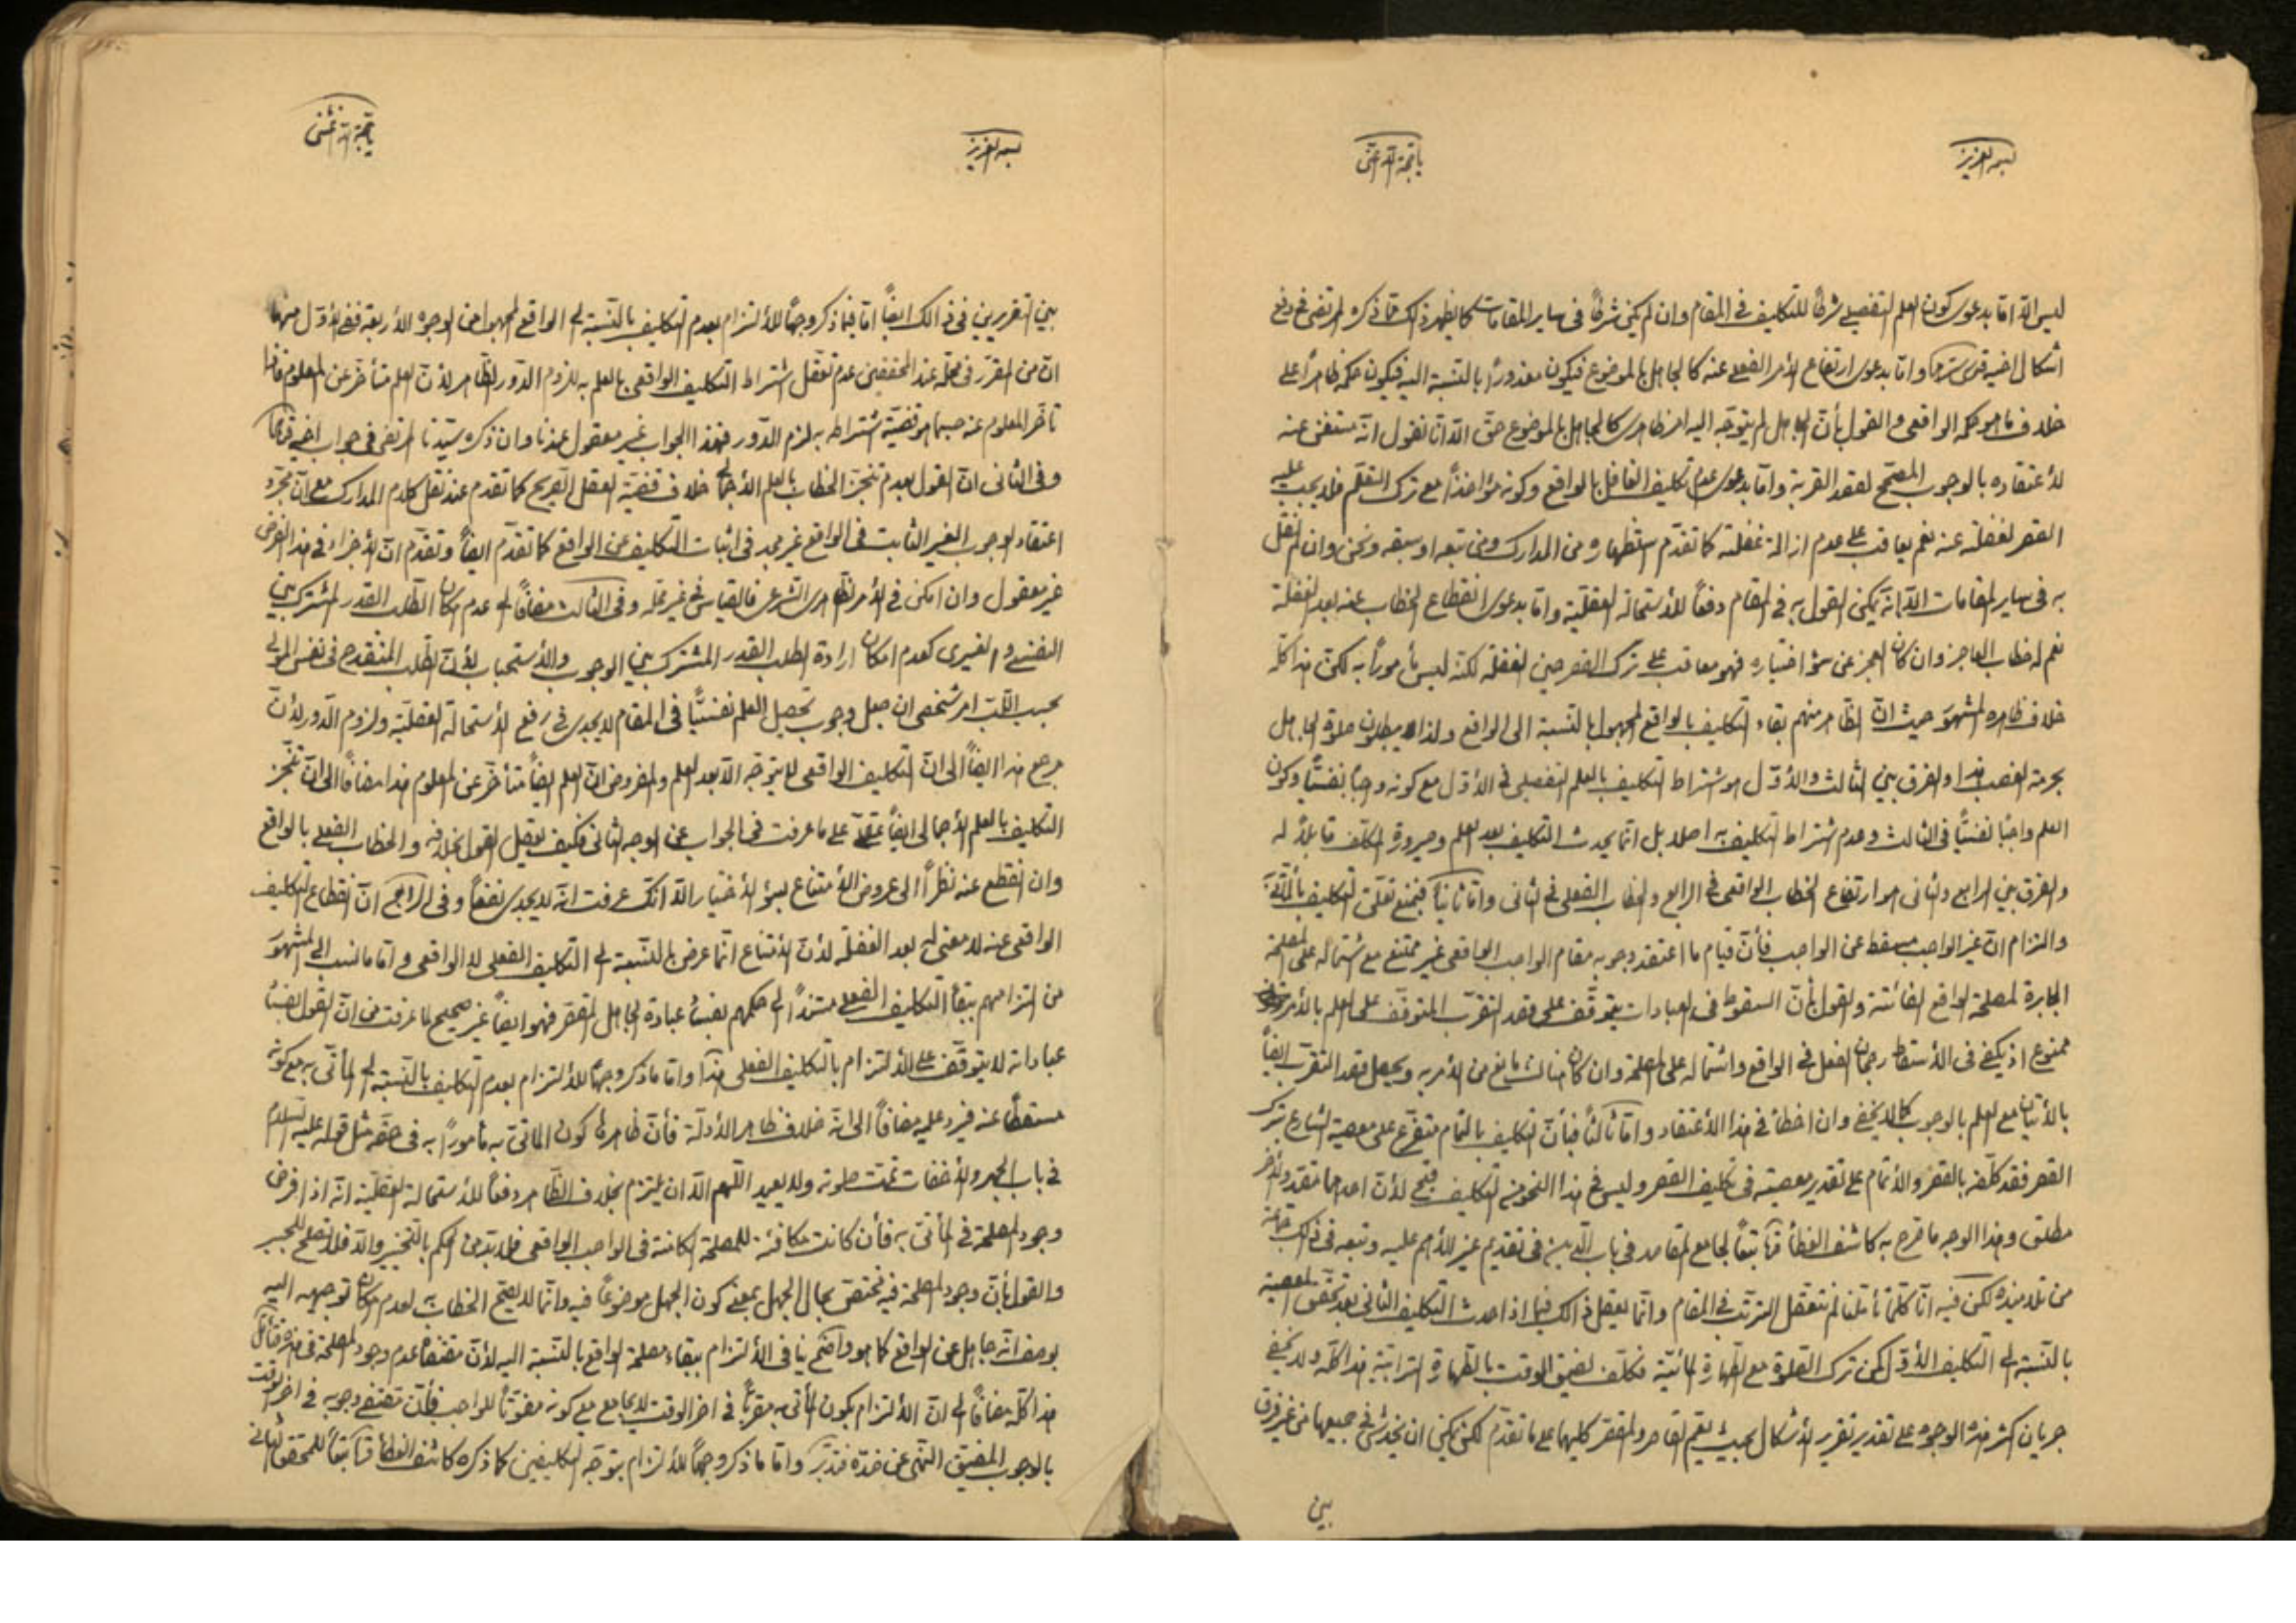 بسمه العزيز
يا حجة الله اغثنى
ليس الّا امّا بدعوى كون العلم التفصيلى شرطًا للتكليف فى المقام وان لم يكن شرطًا فى ساير المقامات كما يظهر ذلك ممّا ذكره المرتضى فى دفع
اشكال اخيه قدس سرهما وامّا بدعوى ارتفاع الأمر الفعلى عنه كالجاهل بالموضوع فيكون معذورًا بالنسبة اليه فيكون حكمه ظاهرًا على
خلاف ما هو حكمه الواقعى والقول بأنّ الجاهل لم يتوجّه اليه امر ظاهرى كالجاهل بالموضوع حقّ الّا انّا نقول انّه مستغنى عنه
لأعتقاده بالوجوب المصحّح لقصد القربة وامّا بدعوى عدم تكليف الغافل بالواقع وكونه مؤاخذًا مع ترك التعلّم فلا يجب عليه
القصر لغفلته عنه نعم يعاقب على عدم ازالة غفلته كما تقدّم استظهاره من المدارك ومن تبعه او سبقه ونحن وان لم نقل
به فى ساير المقامات الّا انّه يمكن القول به فى المقام دفعًا للأستحالة العقليّة وامّا بدعوى انقطاع الخطاب عنه بعد الغفلة
نعم له خطاب العاجز وان كان العجز عن سؤ اختياره فهو معاقب على ترك القصر حين الغفلة لكنّه ليس مأمورًا به لكنّ هذا كلّه
خلاف ظاهر المشهور حيث انّ الظاهر منهم بقاء التكليف بالواقع المجهول بالنسبة الى الواقع ولذا يبطلون صلوة الجاهل
بحرمة الغصب هذا والفرق بين الثالث والأوّل هو اشتراط التكليف بالعلم التفصيلى فى الأوّل مع كونه واجبًا نفسيًّا وكون
العلم واجبًا نفسيًّا فى الثالث وعدم اشتراط التكليف به اصلا بل انّما يحدث التكليف بعد العلم وصيرورة المكلّف قابلًا له
والفرق بين الرابع والثانى هو ارتفاع الخطاب الواقعى فى الرابع والخطاب الفعلى فى الثانى وامّا ثانيًا فبمنع تعلّق التكليف بالمأتىّ به
والتزام انّ غير الواجب مسقط عن الواجب فأنّ قيام ما اعتقد وجوبه مقام الواجب الواقعى غير ممتنع مع اشتماله على المصلحة
الجابرة لمصلحة الواقع الفائتة والقول بأنّ السقوط فى العبادات يتوقّف على قصد التقرّب المتوقّف على العلم بالأمر
ممنوع اذ يكفى فى الأسقاط رجحان الفعل فى الواقع واشتماله على المصلحة وان كان هناك مانع من الأمر به ويحصل قصد التقرّب ايضًا
بالأتيان مع العلم بالوجوب كما لا يخفى وان اخطأ فى هذا الأعتقاد وامّا ثالثًا فبأنّ التكليف بالتمام متفرّع على معصية الشارع بترك
القصر فقد كلّفه بالقصر والأتمام على تقدير معصيته فى تكليف القصر وليس فى هذا النحو من التكليف قبح لأنّ احدهما مقيّد والأخر
مطلق وهذا الوجه ما صرح به كاشف الغطأ تبعًا لجامع المقاصد فى باب الدّين فى تقديم غير الأهم عليه وتبعه فى ذلك جماعة
من تلاميذه لكن فيه انّا كلّما تأمّلنا لم نتعقل الترتب فى المقام وانّما يعقل ذلك فيما اذا احدث التكليف الثانى بعد تحقّق المعصية
بالنسبة الى التكليف الأوّل كمن ترك الصلوة مع الطهارة المائيّة فكلّف لضيق الوقت بالطهارة الترابيّة هذا كلّه ولا يخفى
جريان اكثر هذه الوجوه على تقدير تقرير الأشكال بحيث يعمّ القاصر والمقصّر كليهما على ما تقدّم لكن يمكن ان يخدش فى جميعها من غير فرق
بين
بسمه العزيز
يا حجة الله اغثنى
بين التقريرين فى ذلك ايضًا امّا فيما ذكر وجهًا للألتزام بعدم التكليف بالنسبة الى الواقع المجهول من الوجوه الأربعة ففى الأوّل منها
انّ من المقرّر فى محلّه عند المحققين عدم تعقّل اشتراط التكليف الواقعى بالعلم به للزوم الدّور الظاهر لأنّ العلم متأخّر عن المعلوم فاذا
تأخّر المعلوم عنه حسبما هو قضيّة اشتراطه به لزم الدّور فهذا الجواب غير معقول عندنا وان ذكره سيّدنا المرتضى فى جواب اخيه
وفى الثانى انّ القول بعدم تنجز الخطاب بالعلم الأجمالى خلاف قضيّة العقل الصريح كما تقدم عند نقل كلام المدارك مع انّ مجرّد
اعتقاد الوجوب الغير الثابت فى الواقع غير مجد فى اثبات التكليف عن الواقع كما تقدّم ايضًا وتقدّم انّ الأجزاء فى هذا الفرض
غير معقول وان امكن فى الأمر الظاهرى الشرعى فالقياس فى غير محلّه وفى الثالث مضافًا الى عدم امكان الطلب القدر المشترك بين
النفسى والغيرى كعدم امكان ارادة الطلب القدر المشترك بين الوجوب والأستحباب لأنّ الطلب المنقدح فى نفس المولى
بحسب اللّب امر شخصى ان جعل وجوب تحصيل العلم نفسيًّا فى المقام لا يجدى فى رفع الأستحالة العقليّة ولزوم الدّور لأنّ
مرجع هذا ايضًا الى انّ التكليف الواقعى لا يتوجّه الّا بعد العلم والمفروض انّ العلم ايضًا متأخّر عن المعلوم هذا مضافًا الى انّ تنجّز
التكليف بالعلم الأجمالى ايضًا عقلىّ على ما عرفت فى الجواب عن الوجه الثانى فكيف يعقل القول بخلافه والخطاب الفعلى بالواقع
وان انقطع عنه نظرًا الى عروض الأمتناع لسؤ الأختيار الّا انّك عرفت انّه لا يجدى نفعًا وفى الرابع انّ انقطاع التكليف
الواقعى عنه لا معنى له بعد الغفلة لأنّ الأمتناع انّما عرض بالنسبة الى التكليف الفعلى لا الواقعى وامّا ما نسب الى المشهور
من التزامهم ببقأ التكليف الفعلى مستندًا الى حكمهم بفساد عبادة الجاهل المقصّر فهو ايضًا غير صحيح لما عرفت من انّ القول بفساد
عباداته لا يتوقّف على الألتزام بالتكليف الفعلى هذا وامّا ما ذكر وجهًا للألتزام بعدم التكليف بالنسبة الى المأتىّ به مع كونه
مسقطًا عنه فيرد عليه مضافًا الى انّه خلاف ظاهر الأدلّة فأنّ ظاهرها كون المأتىّ به مأمورًا به فى حقّه مثل قوله عليه السلام
فى باب الجهر والأخفات تمّت صلوته ولا يعيد اللّهم الّا ان يلتزم بخلاف الظاهر دفعًا للأستحالة العقليّة انّه اذا فرض
وجود المصلحة فى المأتىّ به فأن كانت مكافئة للمصلحة الكامنة فى الواجب الواقعى فلا بدّ من الحكم بالتخيير والّا فلا تصلح للجبر
والقول بأنّ وجود المصلحة فيه مختصّ بحال الجهل بمعنى كون الجهل موضوعًا فيه وانّما لا يصحّ الخطاب به لعدم امكان توجيهه اليه
بوصف انّه جاهل عن الواقع كما هو واضح ينافى الألتزام ببقاء مصلحة الواقع بالنسبة اليه لأنّ مقتضاه عدم وجود المصلحة فى
هذا كلّه مضافًا الى انّ الألتزام بكون المأتىّ به مقرّبًا فى اخر الوقت لا يجامع مع كونه مفوّتًا للواجب فأنّ مقتضى وجوبه فى اخر الوقت
بالوجوب المضيّق النّهى عن ضدّه فتدبّر وامّا ما ذكر وجهًا للألتزام بتوجّه التكليفين كما ذكره كاشف الغطأ تبعًا للمحقق الثانى